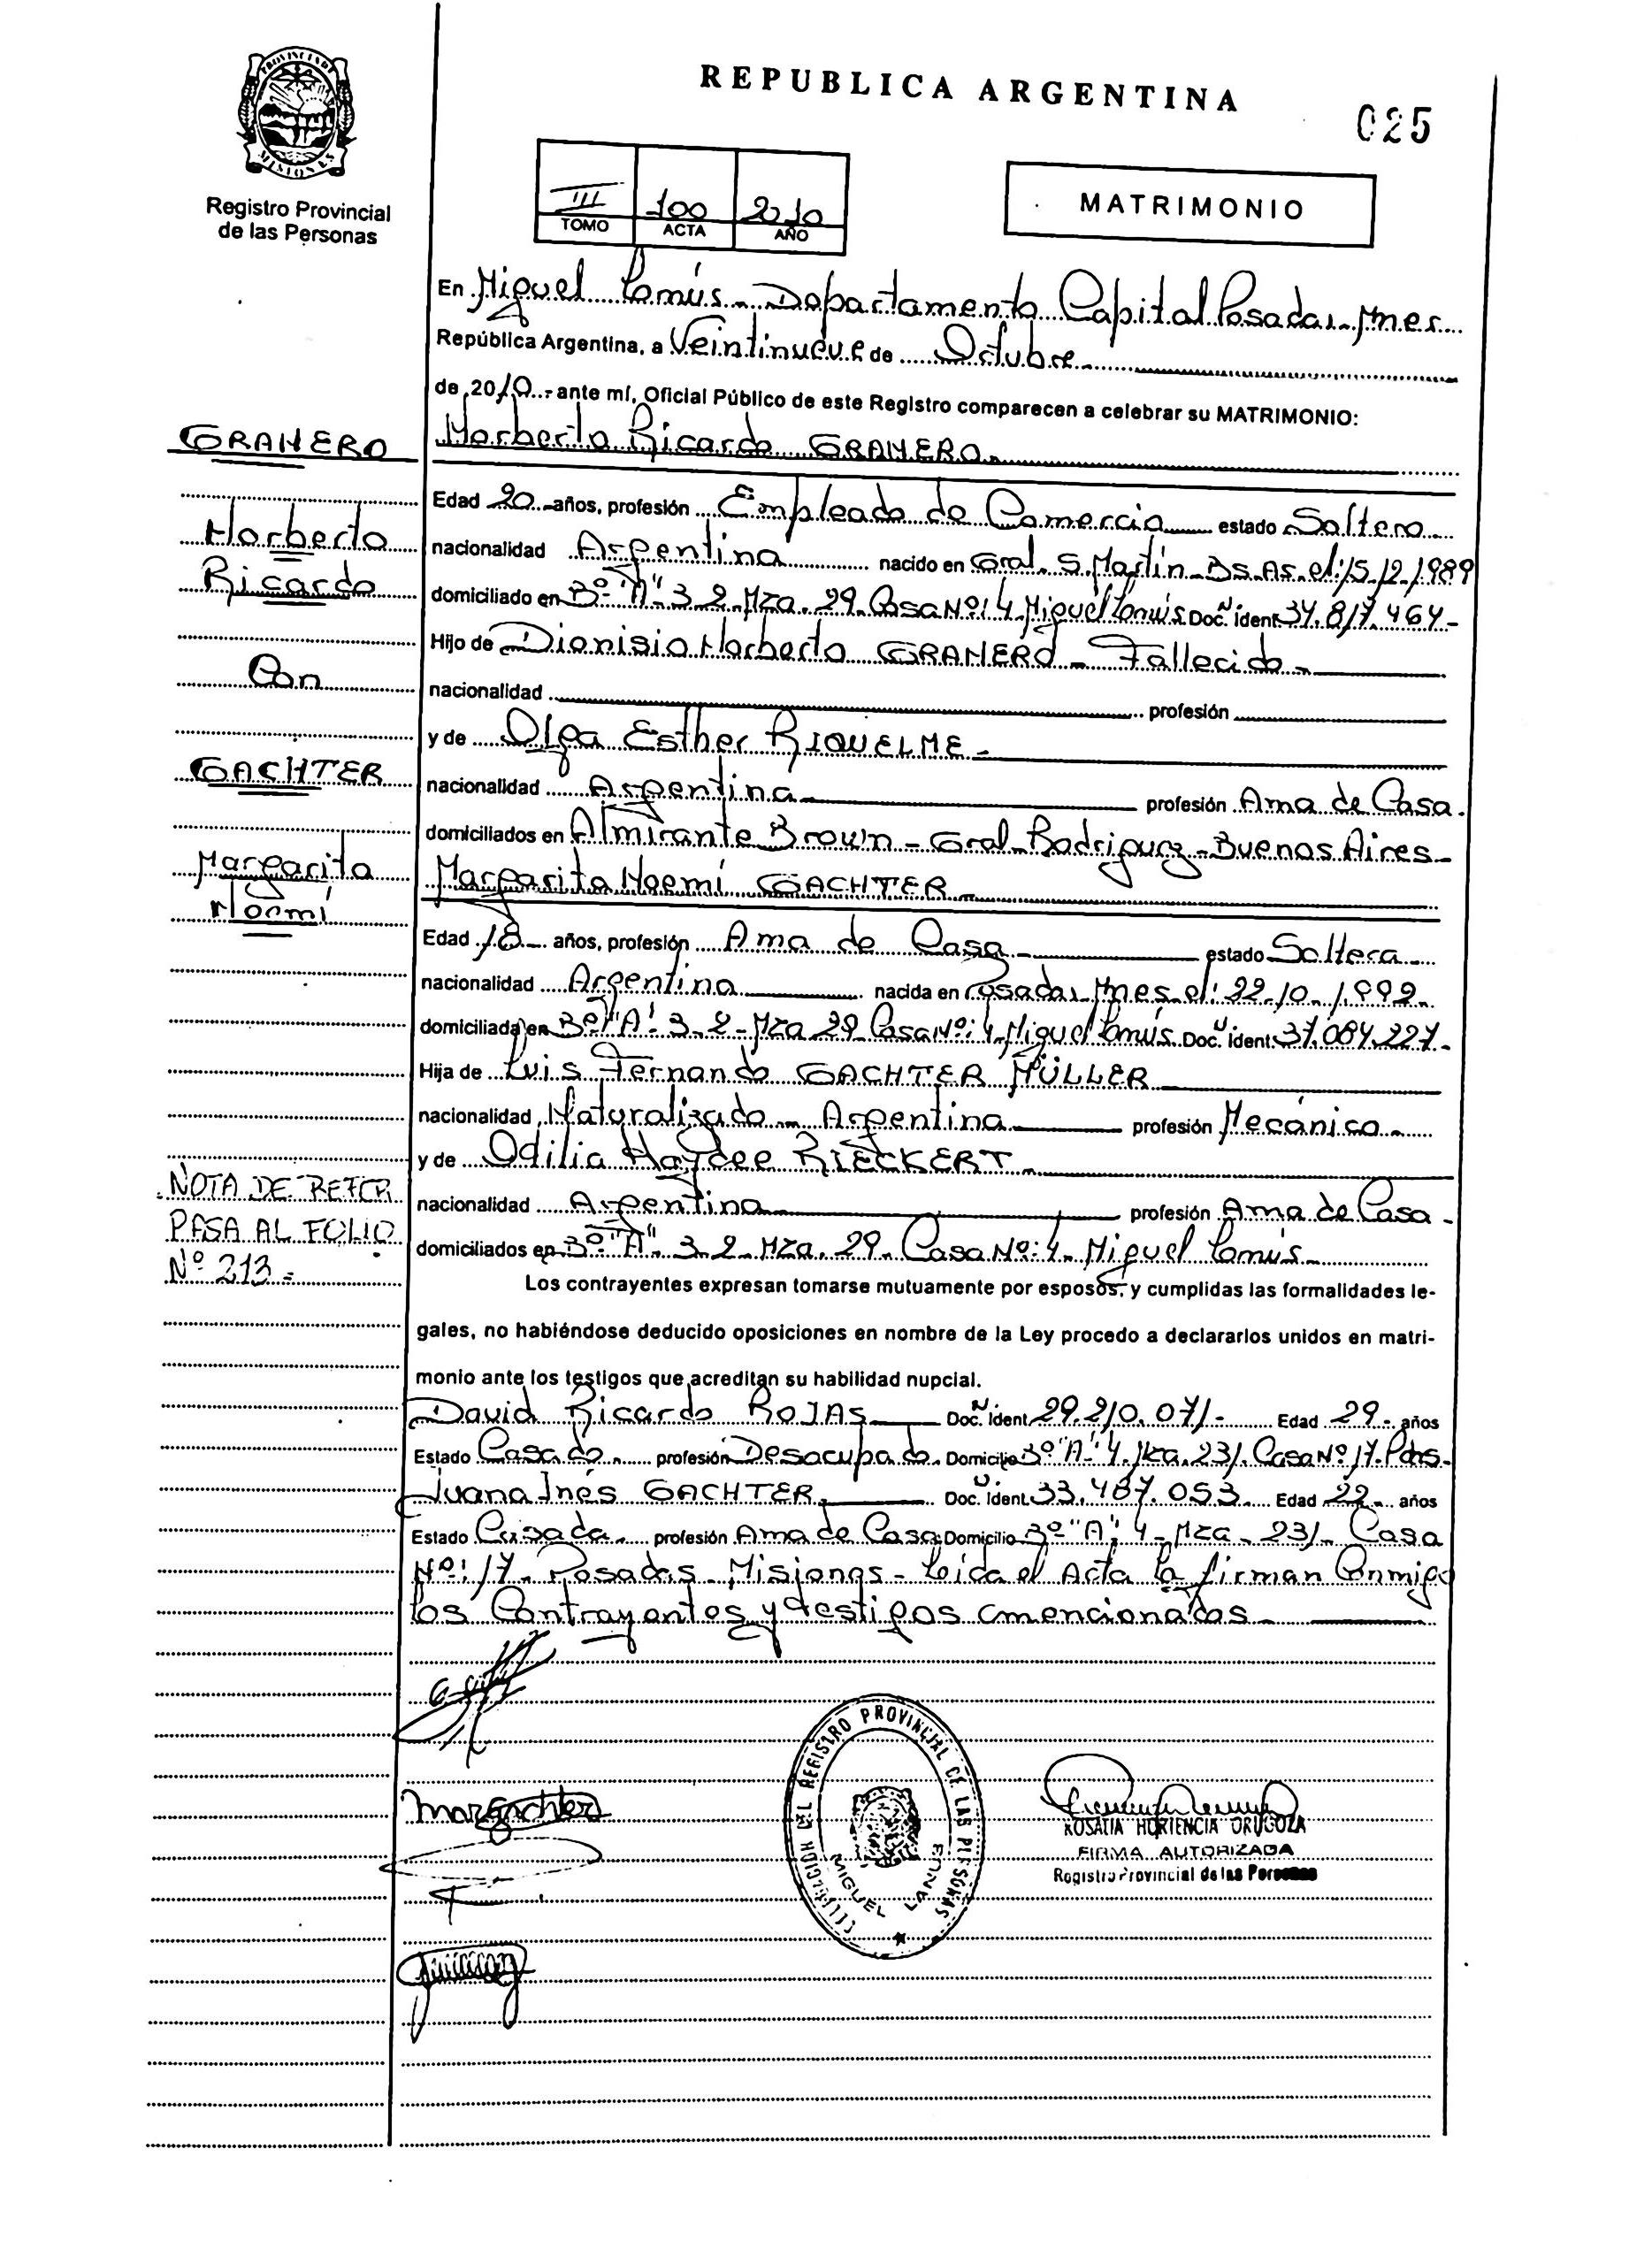 PROVINCIA DE
MISIONES
Registro Provincial
de las Personas
REPUBLICA ARGENTINA
025
III 100 2010
TOMO ACTA AÑO
MATRIMONIO
En Miguel Lanús - Departamento Capital Posadas - Mnes
República Argentina, a Veintinueve de Octubre
de 2010.- ante mí, Oficial Público de este Registro comparecen a celebrar su MATRIMONIO:
GRANERO
Norberto Ricardo GRANERO
Edad 20 años, profesión Empleado de Comercio estado Soltero
Norberto
nacionalidad Argentina nacido en Gral. S. Martín - Bs. As. el: 15/2/1989
Ricardo
domiciliado en Bº "A" 3-2 - Mza. 29. Casa Nº: 4. Miguel Lanús Doc. Ident. 34.817.464-
Hijo de Dionisio Norberto GRANERO - Fallecido -
Con
nacionalidad profesión
y de Olga Esther RIQUELME -
GACHTER
nacionalidad Argentina profesión Ama de Casa.
domiciliados en Almirante Brown - Gral. Rodriguez - Buenos Aires -
Margarita
Noemí
Margarita Noemí GACHTER
Edad 18 años, profesión Ama de Casa estado Soltera
nacionalidad Argentina nacida en Posadas Mnes el: 22.10.1992.
domiciliada en Bº "A" 3-2 - Mza 29. Casa Nº: 4. Miguel Lanús Doc. Ident. 37.084.227-
Hija de Luis Fernando GACHTER MÜLLER
nacionalidad Naturalizado - Argentina profesión Mecánico
y de Odilia Haydee RIECKERT
NOTA DE REFER.
PASA AL FOLIO
Nº 213 =
nacionalidad Argentina profesión Ama de Casa -
domiciliados en Bº "A" 3-2 - Mza. 29. Casa Nº: 4 - Miguel Lanús
Los contrayentes expresan tomarse mutuamente por esposos, y cumplidas las formalidades le-
gales, no habiéndose deducido oposiciones en nombre de la Ley procedo a declararlos unidos en matri-
monio ante los testigos que acreditan su habilidad nupcial.
David Ricardo ROJAS Doc. Ident. 29.210.071- Edad 29 años
Estado Casado profesión Desocupado. Domicilio Bº "A" 4. Mza. 231. Casa Nº 17. Pdas-
Juana Inés GACHTER Doc. Ident. 33.487.053 Edad 22 años
Estado Casada profesión Ama de Casa Domicilio Bº "A" 4 - Mza - 231 - Casa
Nº: 17 - Posadas - Misiones - Leída el Acta la firman Conmigo
los Contrayentes y testigos mencionados
REGISTRO PROVINCIAL DE LAS PERSONAS
MIGUEL LANUS
ROSALIA HORTENCIA ORUGOZA
FIRMA AUTORIZADA
Registro Provincial de las Personas